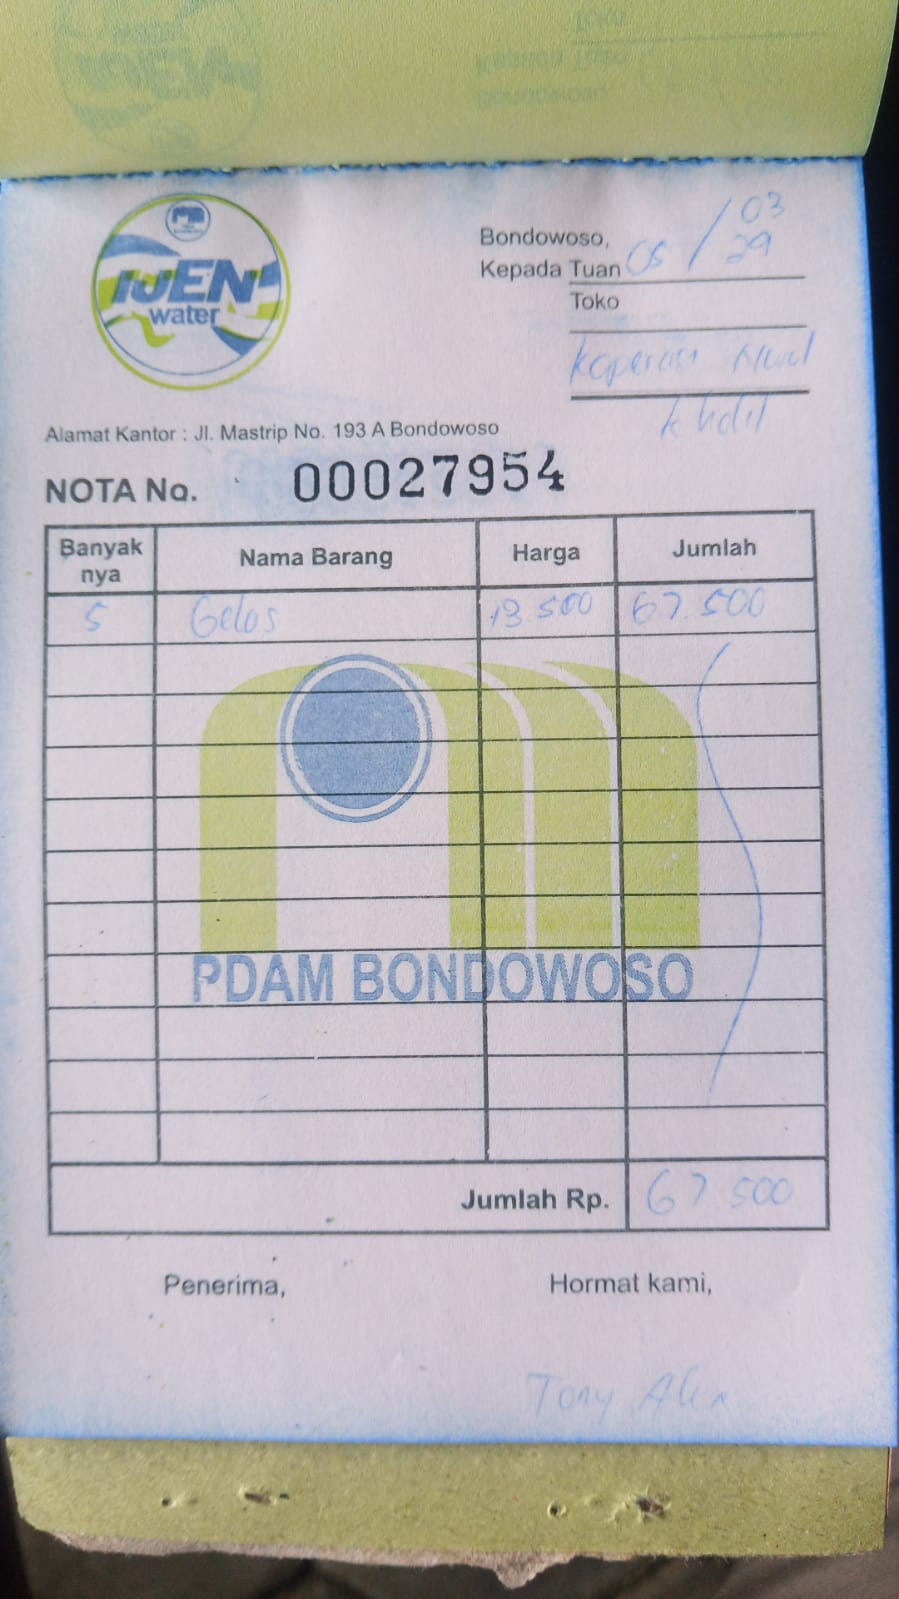 IJEN
water
Bondowoso,
05 / 03
29
Kepada Tuan
Toko
Koperasi Nurul
Kholil
Alamat Kantor : Jl. Mastrip No. 193 A Bondowoso
NOTA No. 00027954
Banyak nya Nama Barang Harga Jumlah
5 Gelas 13.500 67.500
PDAM BONDOWOSO
Jumlah Rp. 67.500
Penerima, Hormat kami,
Tony Alex